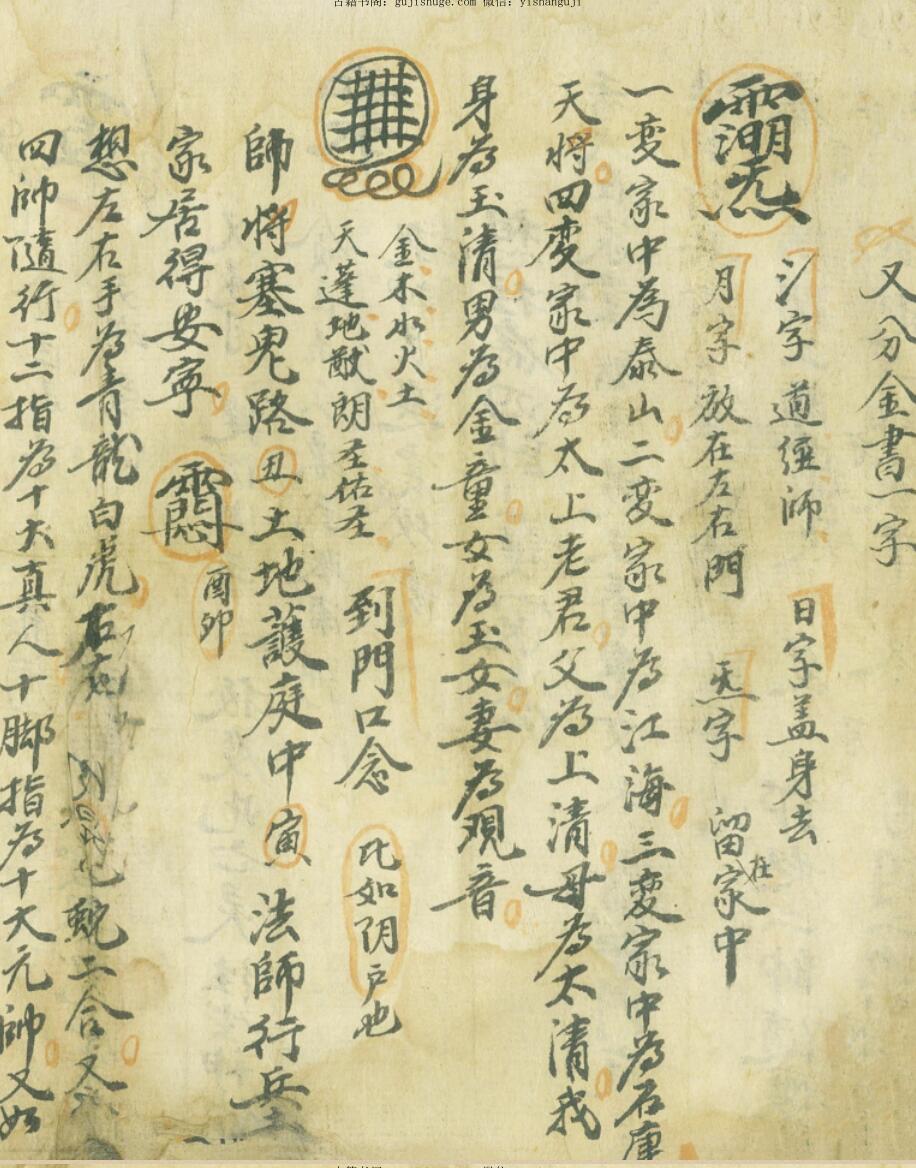 古籍书阁：gujishuge.com 微信：yishanguji
又分金書一字
氵字 道經師 日字盖身去
月字 放在左右門 炁字 留在家中
一变家中為泰山二变家中為江海三变家中為石庫
天将四变家中為太上老君父為上清母為太清我
身為玉清男為金童女為玉女妻為观音
金木水火土
天蓬地猷朗圣佑圣
到門口念 比如阴户也
師将塞鬼路丑土地護庭中寅法師行兵
家居得安寧
酉卯
想左右手為青龍白虎右 蛇二合又
四帥隨行十二指為十大真人十脚指為十大元帥又如